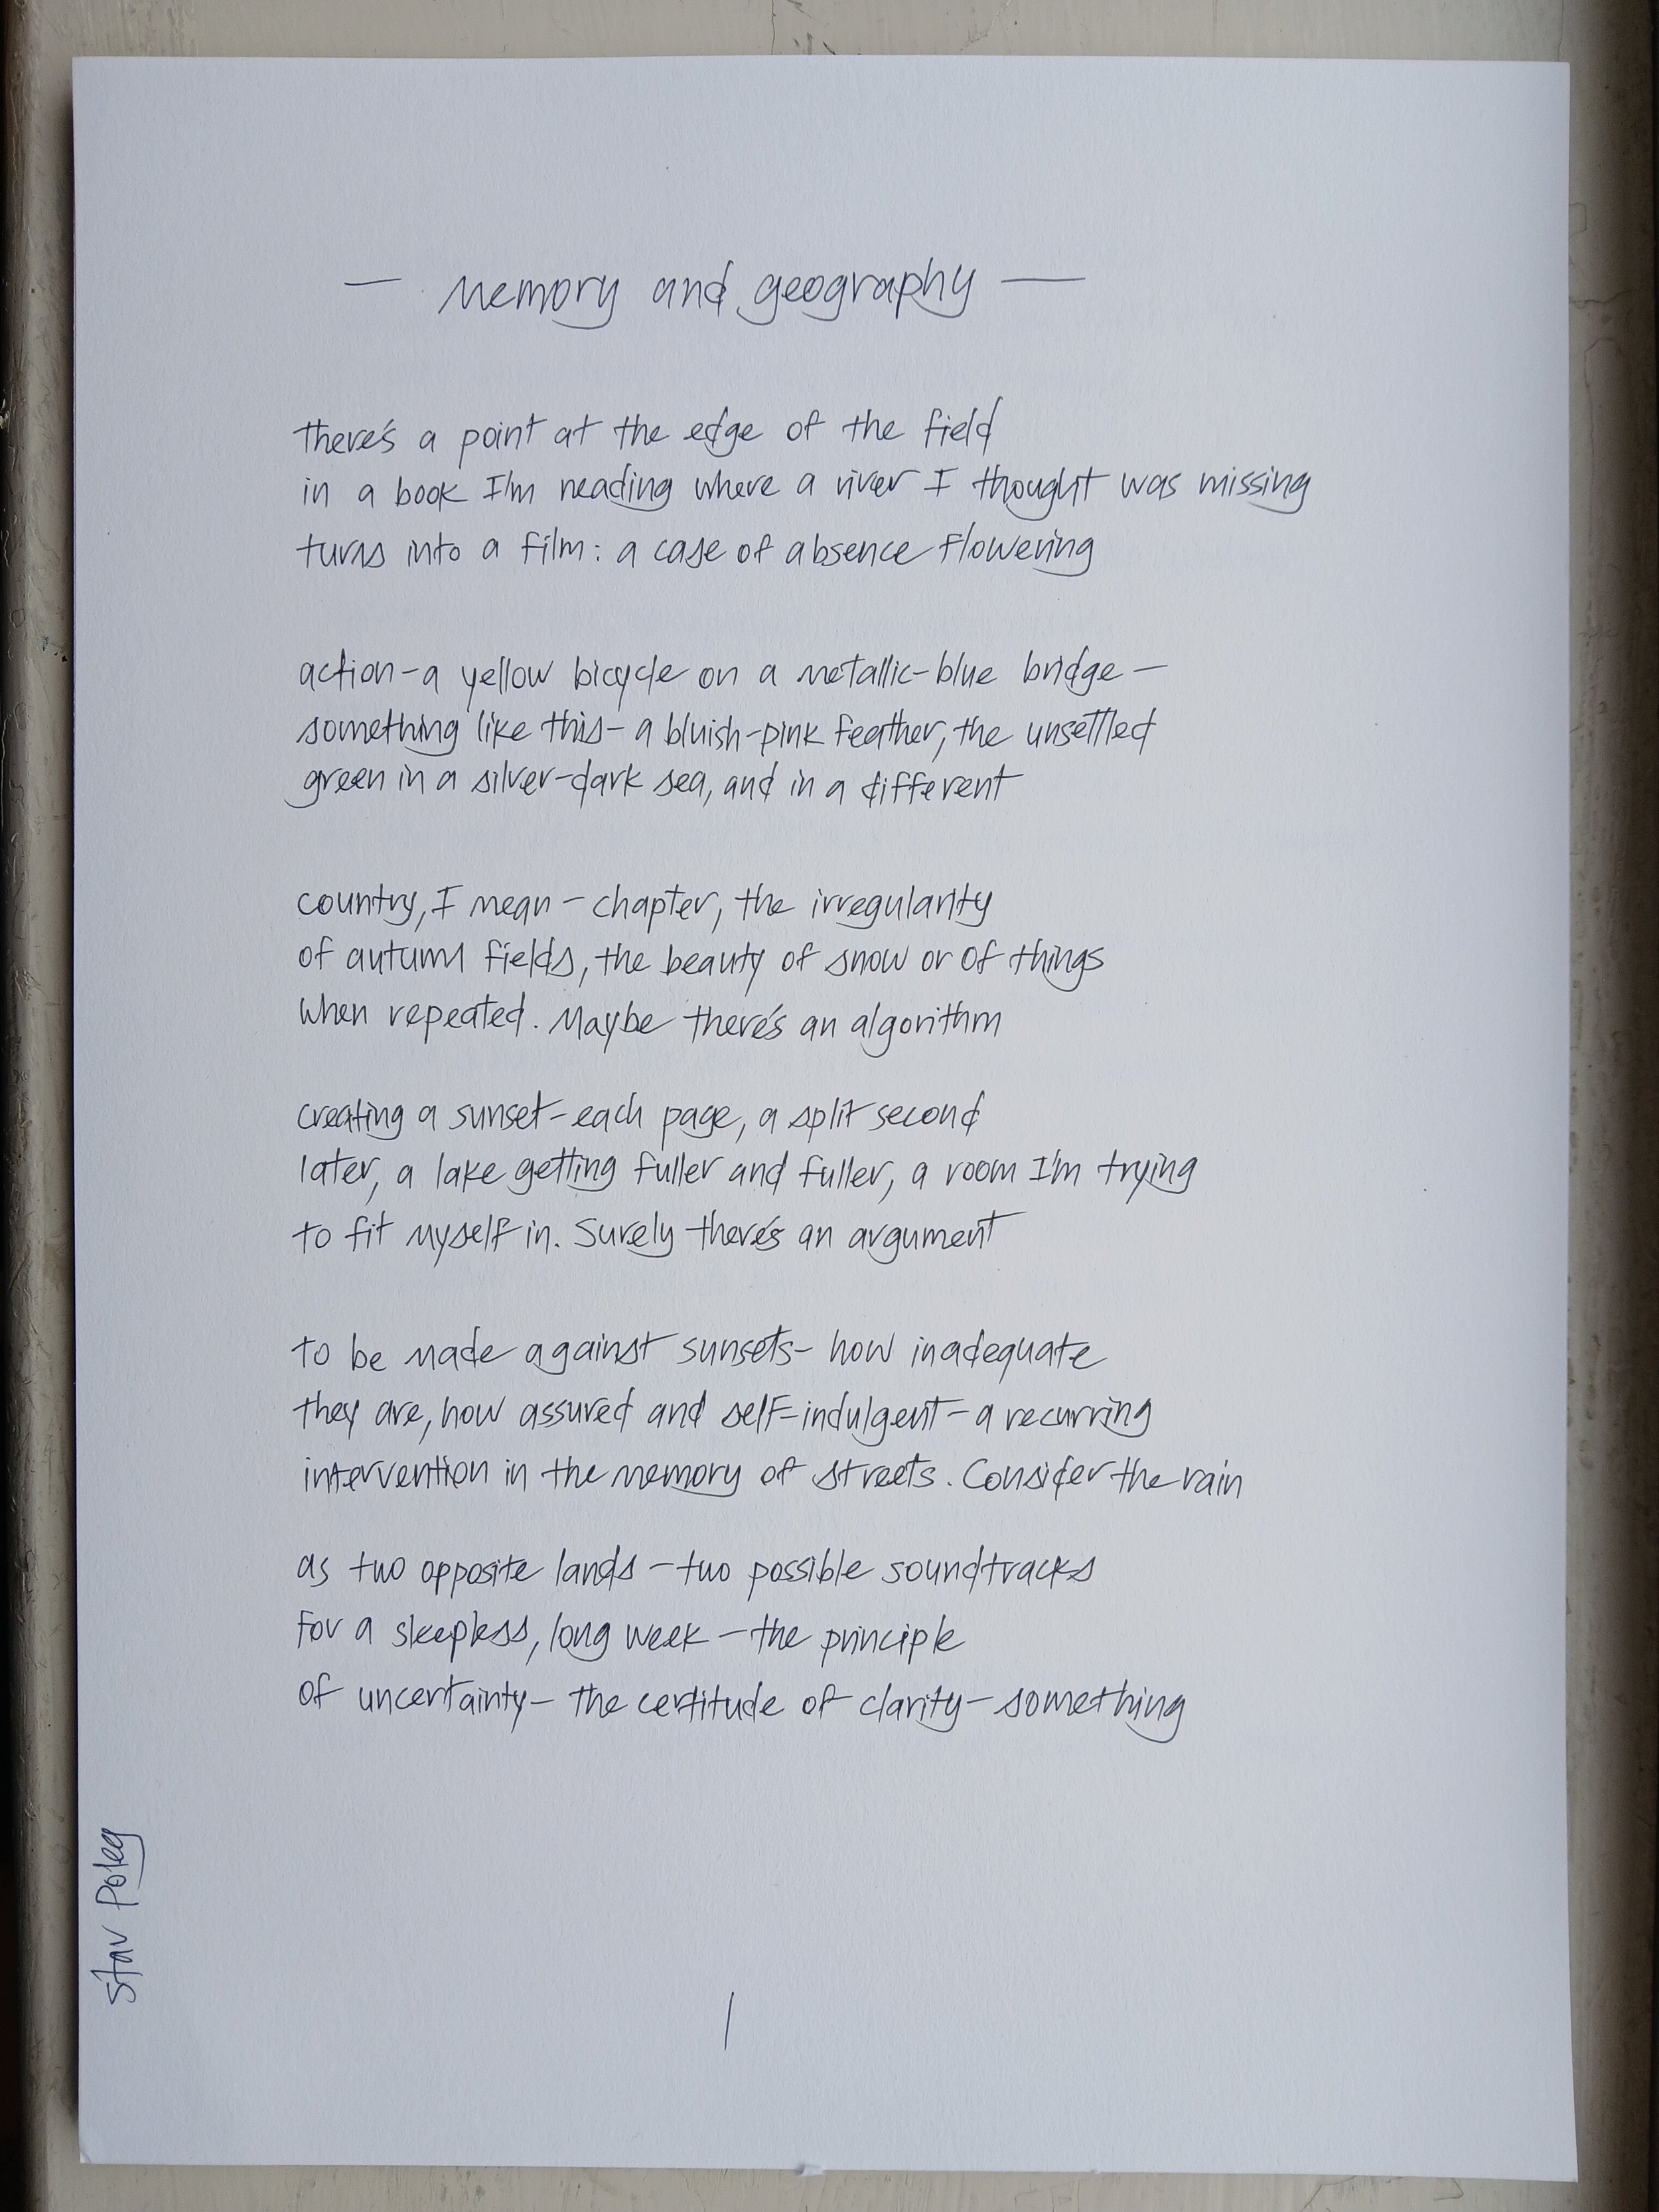 — Memory and geography —
There's a point at the edge of the field
in a book I'm reading where a river I thought was missing
turns into a film: a case of absence flowering
action – a yellow bicycle on a metallic-blue bridge –
something like this – a bluish-pink feather, the unsettled
green in a silver-dark sea, and in a different
country, I mean – chapter, the irregularity
of autumn fields, the beauty of snow or of things
when repeated. Maybe there's an algorithm
creating a sunset – each page, a split second
later, a lake getting fuller and fuller, a room I'm trying
to fit myself in. Surely there's an argument
to be made against sunsets – how inadequate
they are, how assured and self-indulgent – a recurring
intervention in the memory of streets. Consider the rain
as two opposite lands – two possible soundtracks
for a sleepless, long week – the principle
of uncertainty – the certitude of clarity – something
Stav Poleg
1